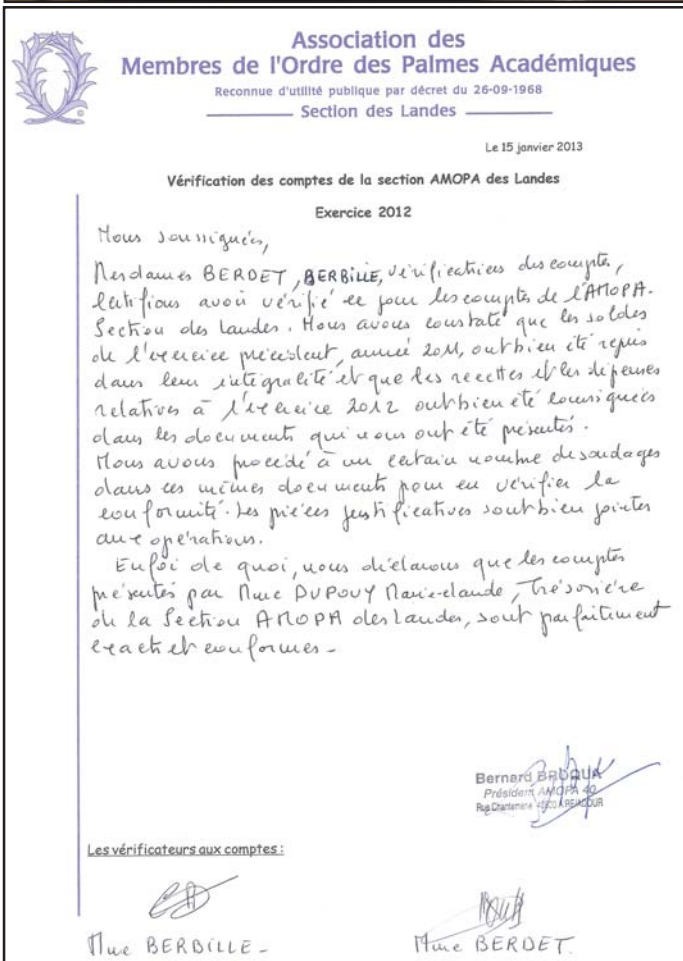 Association des
Membres de l'Ordre des Palmes Académiques
Reconnue d'utilité publique par décret du 26-09-1968
Section des Landes
Le 15 janvier 2013
Vérification des comptes de la section AMOPA des Landes
Exercice 2012
Nous soussignées,
Mesdames BERDET, BERBILLE, vérificatrices des comptes,
certifions avoir vérifié ce jour les comptes de l'AMOPA.
Section des Landes. Nous avons constaté que les soldes
de l'exercice précédent, année 2011, ont bien été repris
dans leur intégralité et que les recettes et les dépenses
relatives à l'exercice 2012 ont bien été consignées
dans les documents qui nous ont été présentés.
Nous avons procédé à un certain nombre de sondages
dans ces mêmes documents pour en vérifier la
conformité. Les pièces justificatives sont bien jointes
aux opérations.
En foi de quoi, nous déclarons que les comptes
présentés par Mme DUPOUY Marie-claude, Trésorière
de la Section AMOPA des Landes, sont parfaitement
exacts et conformes -
Bernard BROQUA
Président AMOPA 40
Rue
Les vérificateurs aux comptes :
Mme BERBILLE -
Mme BERDET.